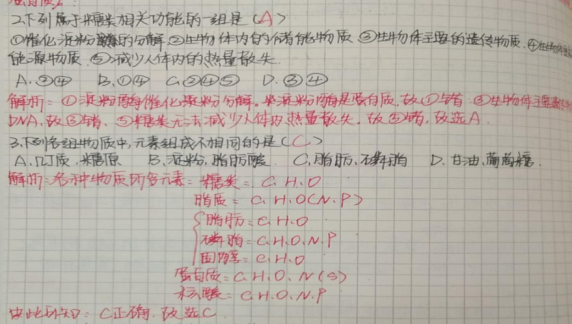 2.下列属于糖类相关功能的一组是(A)
①催化淀粉酶的分解 ②生物体内的储能物质 ③生物体主要的遗传物质 ④生物体
能源物质 ⑤减少人体内的热量散失
A.②④ B.①④ C.②④⑤ D.③④
解析:①淀粉酶催化淀粉分解,淀粉酶是蛋白质,故①错 ③生物体主要
DNA,故③错.⑤糖类无法减少人体内热量散失,故⑤错,故选A.
3.下列各组物质中,元素组成不相同的是(C)
A.几丁质,糖原 B.淀粉,脂肪酸 C.脂肪,磷脂 D.甘油,葡萄糖.
解析:各种物质所含元素:糖类=C.H.O
脂质=C.H.O(N.P)
脂肪=C.H.O
磷脂=C.H.O.N.P
固醇=C.H.O
蛋白质=C.H.O.N(S)
核酸=C.H.O.N.P
由此可知:C正确.故选C